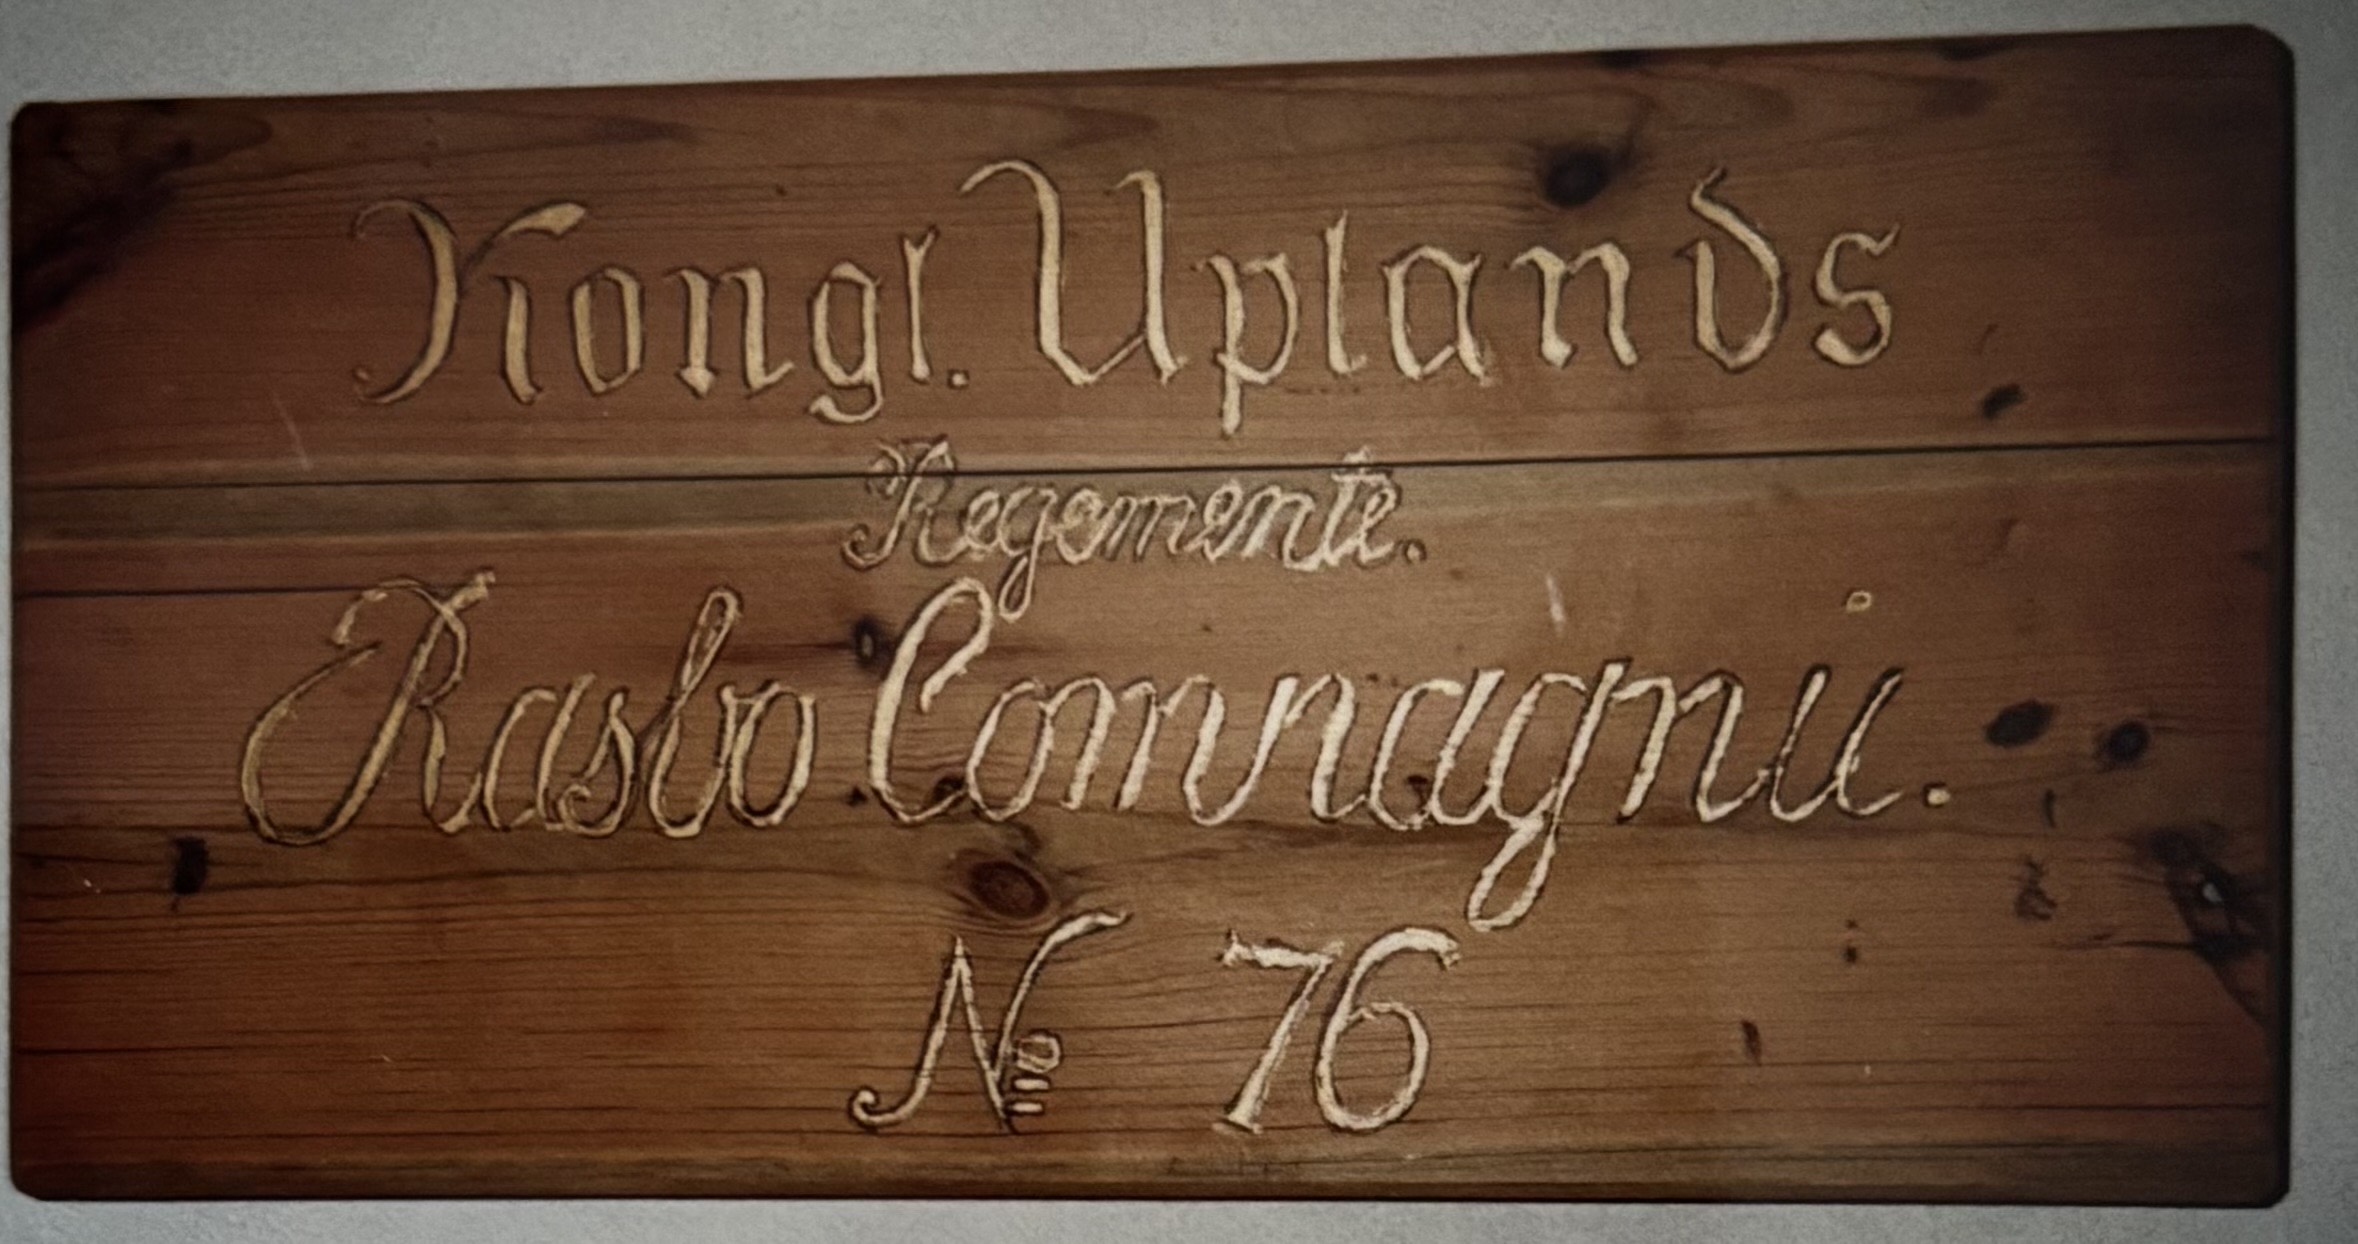 Kongl. Uplands
Regemente.
Rasbo Compagnii.
No 76